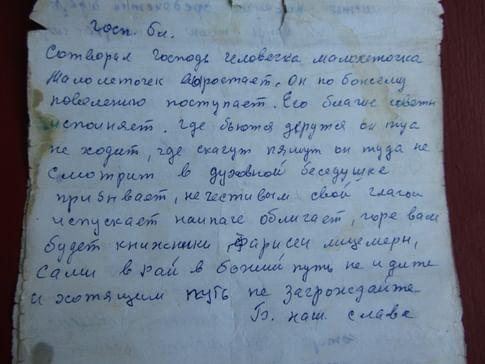 Госп. Бл.
Сотворал Господь человечка малолеточка
Малолеточек возростает. Он по божему
повелению поступает. Его благие советы
исполняет. Где бьются дерутся он туа
не ходит, где скачут пляшут он туда не
смотрит в духовной беседушке
призывает, не честивым свой глагол
испускает наипаче обличает, горе вам
будет книжники фарисеи лицемеры,
сами в рай в божий путь не идите
и хотящим путь не загрождайте
Б. наш. слава